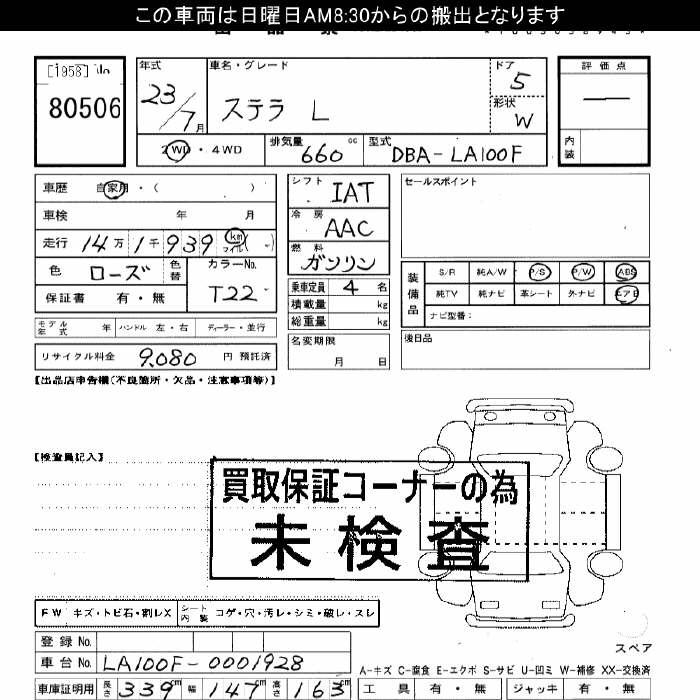 この車両は日曜日AM8:30からの搬出となります
[1958] No
80506
年式
23/7月
車名・グレード
ステラ L
ドア
5
形状
W
評価点
—
内装
2WD・4WD
排気量
660cc
型式
DBA-LA100F
車歴 自家用・( )
車検 年 月
走行 14万1千939 (km マイル)
色 ローズ 色替
カラーNo.
T22
保証書 有・無
シフト
IAT
冷房
AAC
燃料
ガソリン
乗車定員 4 名
積載量 kg
総重量 kg
名変期限
月 日
セールスポイント
装備品
S/R 純A/W P/S P/W ABS
純TV 純ナビ 革シート 外ナビ エアB
ナビ型番:
後日品
モデル年式 年 ハンドル 左・右 ディーラー・並行
リサイクル料金 9,080 円 預託済
【出品店申告欄(不良箇所・欠品・注意事項等)】
【検査員記入】
買取保証コーナーの為
未検査
FW キズ・トビ石・割レX
シート内装 コゲ・穴・汚レ・シミ・破レ・スレ
登録 No.
車台 No. LA100F-0001928
車庫証明用 長さ 339cm 幅 147cm 高さ 163cm
スペア
A-キズ C-腐食 E-エクボ S-サビ U-凹ミ W-補修 XX-交換済
工具 有・無 ジャッキ 有・無